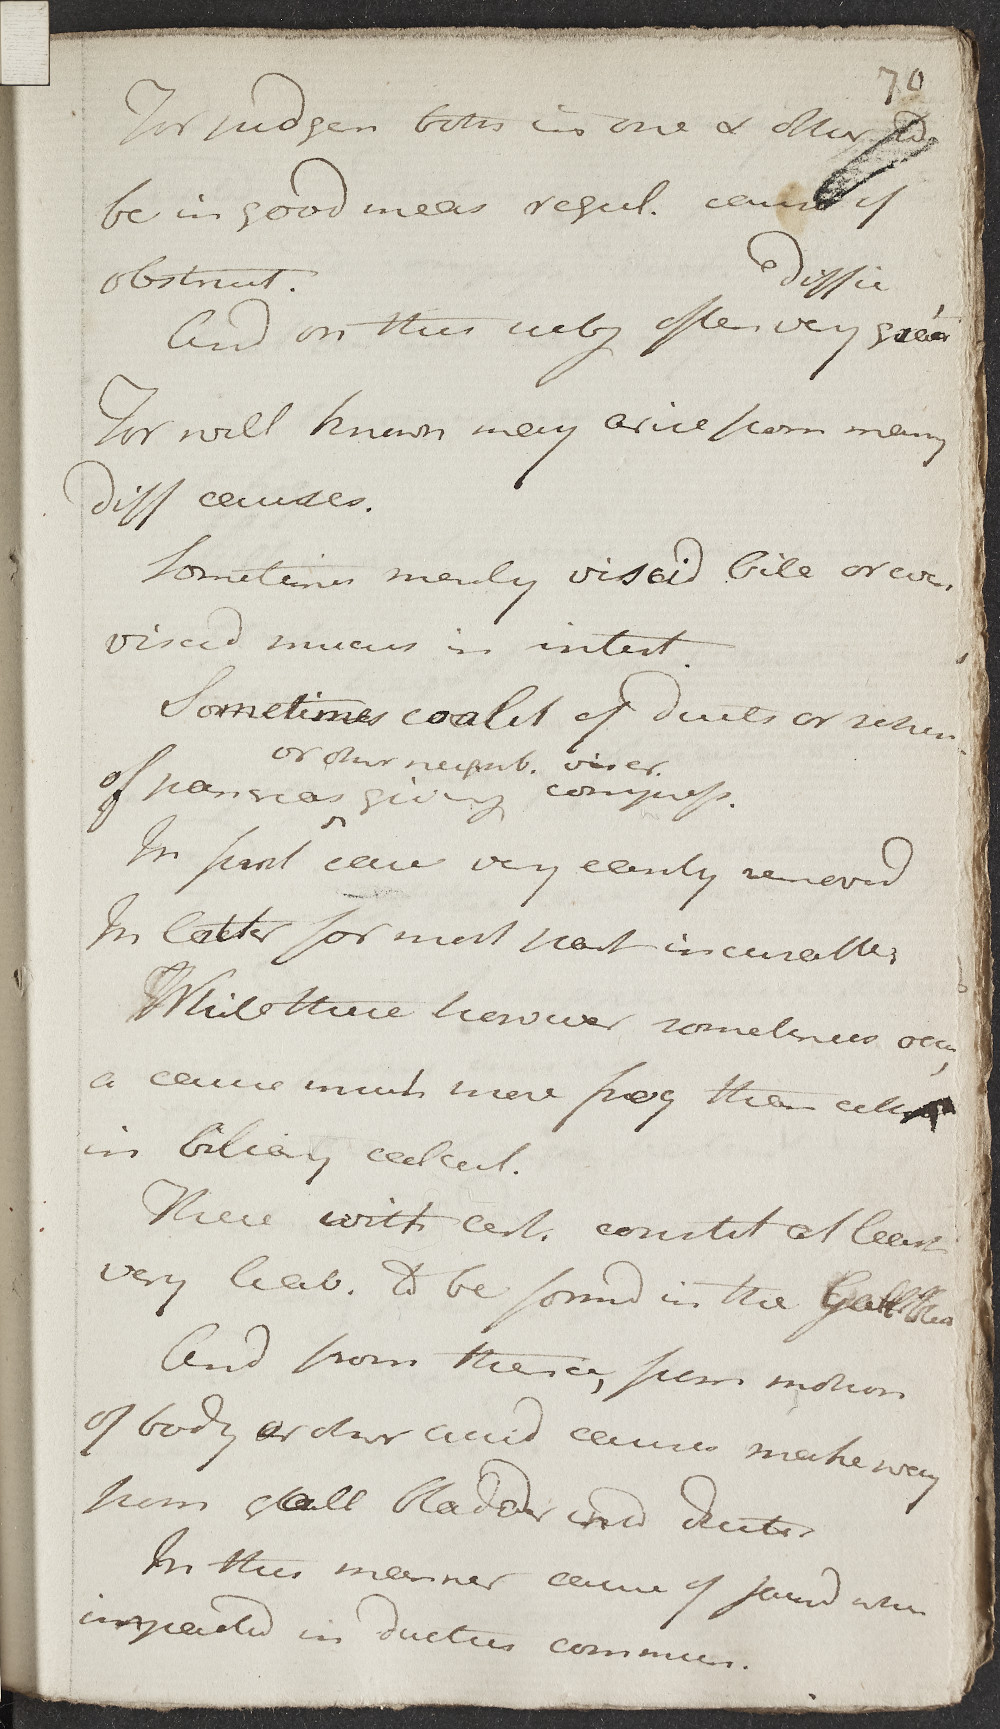 70
For judgen both in one & other
be in good meas regul. cause of
obstruct.
diffic
And on this subj often very great
For well known may arise from many
diff causes.
Sometimes merely viscid bile or even
viscid mucus in intest.
Sometimes coalit of ducts or schir
or other neighb. viscer.
of pancreas giving compress.
In first case very easily removed
In latter for most part incurable
While there however sometimes occ,
a cause much more freq than
in biliary calcul.
These with cert. constit at least
very liab. to be formd in the Gall Bla
And from thence, from motion
of body or other accid causes make way
from gall bladder into ducts
In this manner cause of jaund when
impacted in ductus commun.